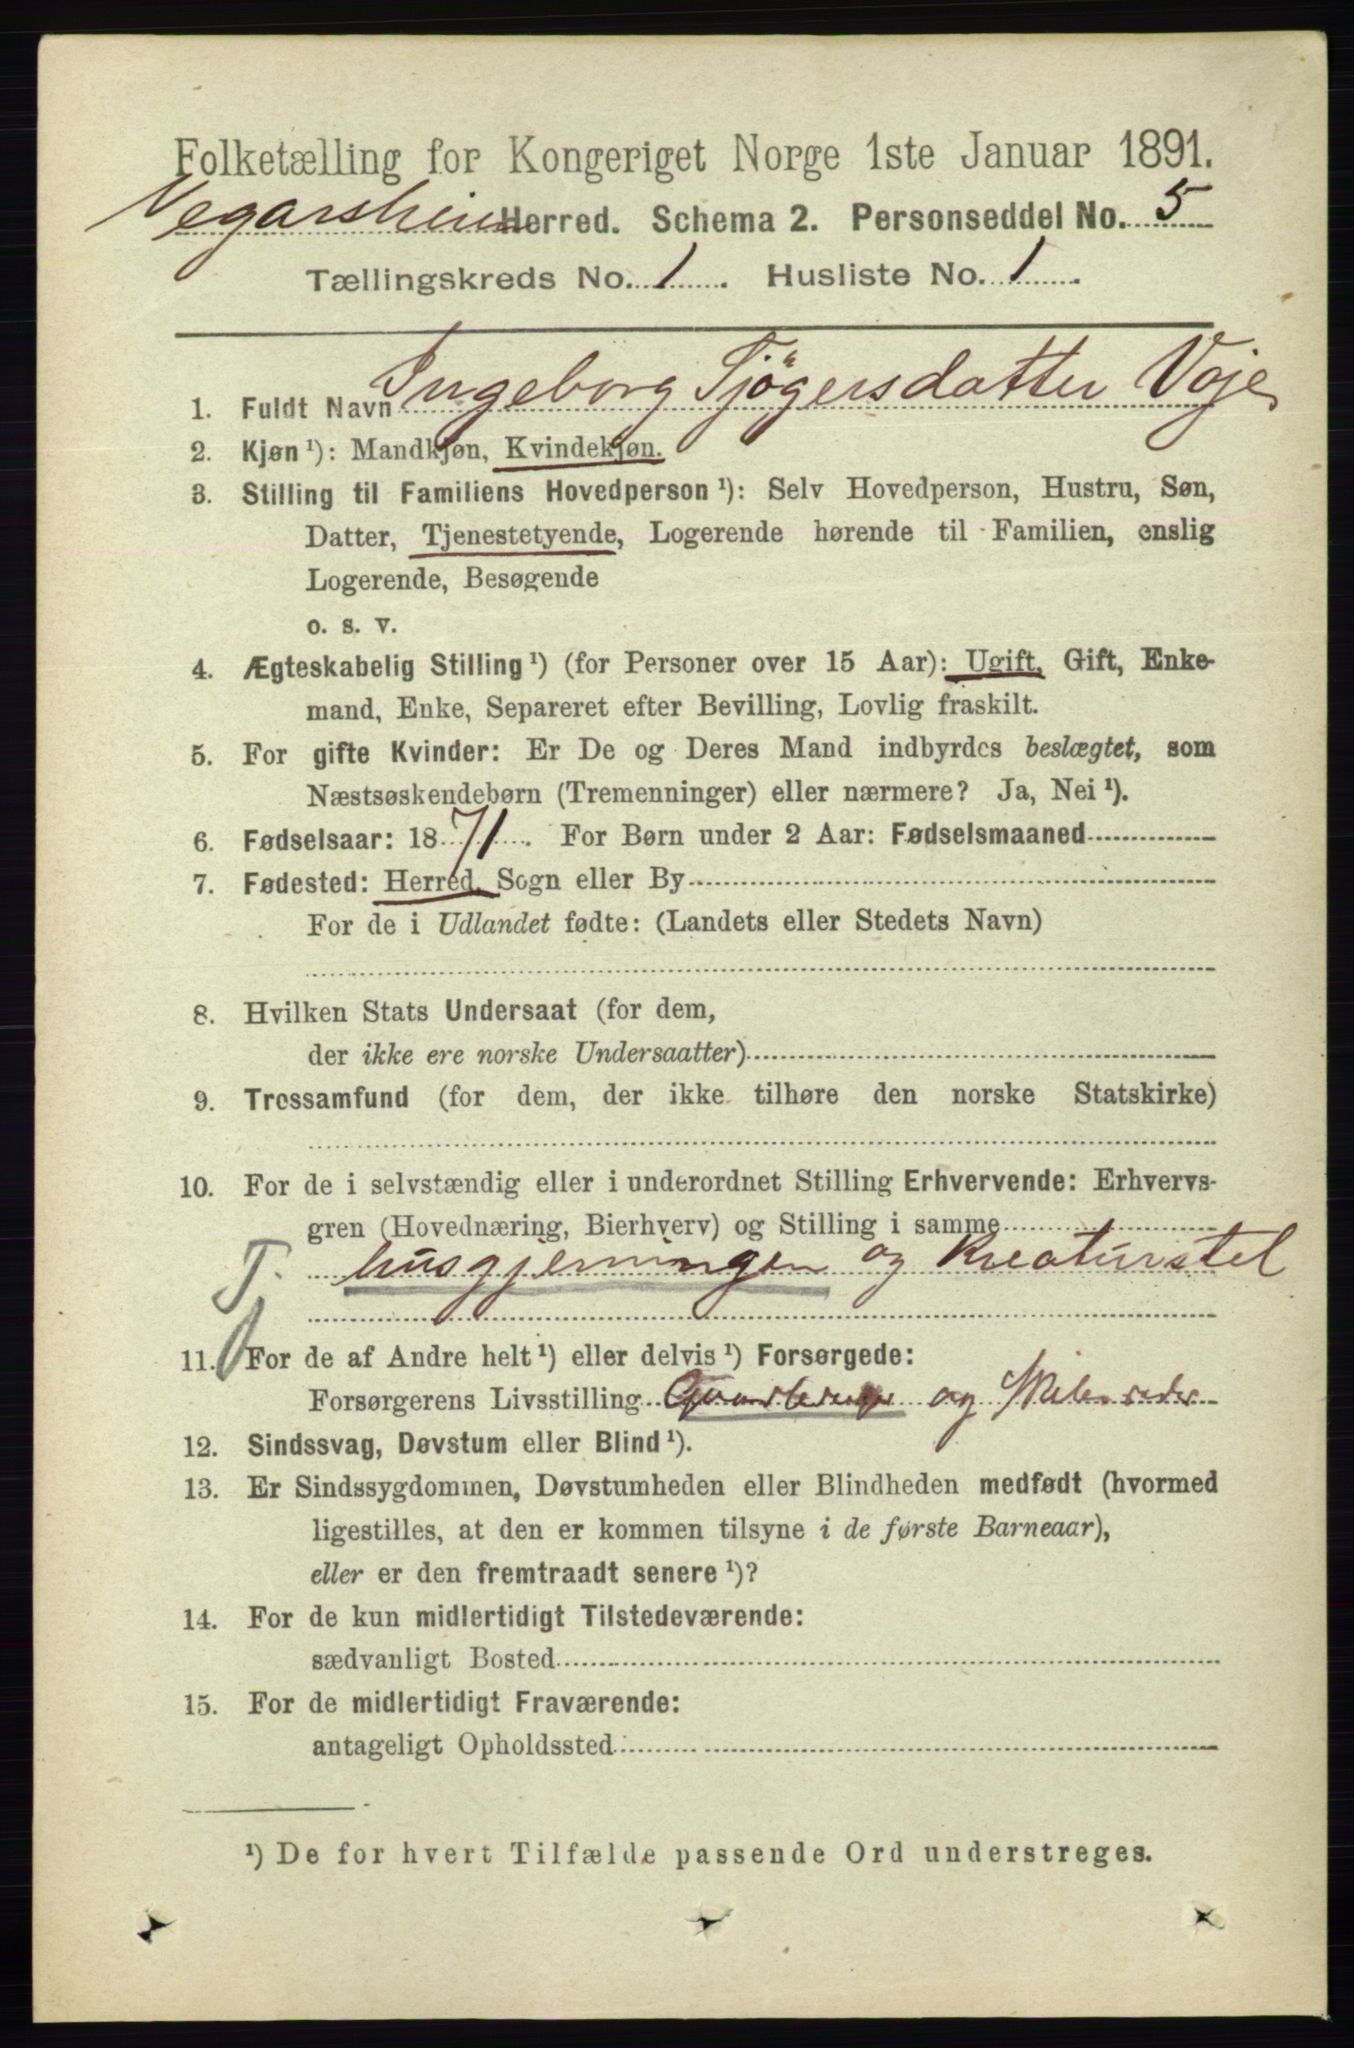 Folketælling for Kongeriget Norge 1ste Januar 1891.
Vegarsheien Herred. Schema 2. Personseddel No. 5
Tællingskreds No. 1. Husliste No. 1.
1. Fuldt Navn Ingeborg Tjögersdatter Voje
2. Kjøn ¹): Mandkjøn, Kvindekjøn.
3. Stilling til Familiens Hovedperson ¹): Selv Hovedperson, Hustru, Søn,
Datter, Tjenestetyende, Logerende hørende til Familien, enslig
Logerende, Besøgende
o. s. v.
4. Ægteskabelig Stilling ¹) (for Personer over 15 Aar): Ugift, Gift, Enke-
mand, Enke, Separeret efter Bevilling, Lovlig fraskilt.
5. For gifte Kvinder: Er De og Deres Mand indbyrdes beslægtet, som
Næstsøskendebørn (Tremenninger) eller nærmere? Ja, Nei ¹).
6. Fødselsaar: 1871. For Børn under 2 Aar: Fødselsmaaned
7. Fødested: Herred, Sogn eller By
For de i Udlandet fødte: (Landets eller Stedets Navn)
8. Hvilken Stats Undersaat (for dem,
der ikke ere norske Undersaatter)
9. Trossamfund (for dem, der ikke tilhøre den norske Statskirke)
10. For de i selvstændig eller i underordnet Stilling Erhvervende: Erhvervs-
gren (Hovednæring, Bierhverv) og Stilling i samme
T. husgjerningen og Kreaturstel
11. For de af Andre helt ¹) eller delvis ¹) Forsørgede:
Forsørgerens Livsstilling og
12. Sindssvag, Døvstum eller Blind ¹).
13. Er Sindssygdommen, Døvstumheden eller Blindheden medfødt (hvormed
ligestilles, at den er kommen tilsyne i de første Barneaar),
eller er den fremtraadt senere ¹)?
14. For de kun midlertidigt Tilstedeværende:
sædvanligt Bosted
15. For de midlertidigt Fraværende:
antageligt Opholdssted
¹) De for hvert Tilfælde passende Ord understreges.